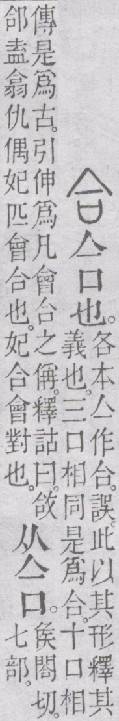 合 亼口也。
各本亼作合。誤。此以其形釋其
義也。三口相同是爲合。十口相
傳是爲古。引伸爲凡會合之偁。釋詁曰。敆
郃盍翕仇偶妃匹會合也。妃合會對也。
从亼口。
矦閤切。
七部。